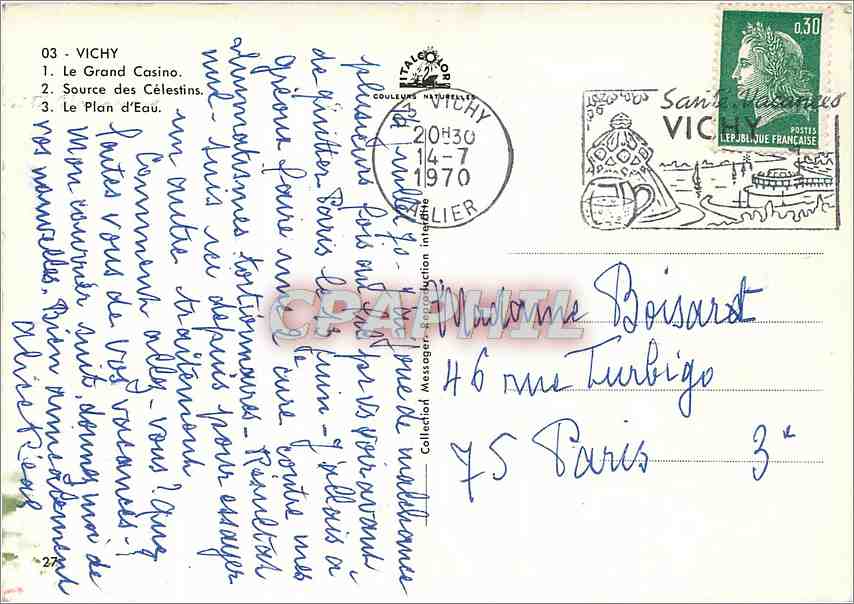 03 - VICHY
1. Le Grand Casino.
2. Source des Célestins.
3. Le Plan d'Eau.
ITALCOLOR
COULEURS NATURELLES
VICHY
20H30
14-7
1970
ALLIER
Santé-Vacances
VICHY
0,30
POSTES
REPUBLIQUE FRANÇAISE
Juillet 70 - de malchance
plusieurs fois pu vs voir avant
de quitter Paris le Juin - J'allais à
Gréoux faire une cure contre mes
rhumatismes - Résultat
nul - suis ici depuis pour essayer
un autre traitement
Comment allez-vous? que
faites vous de vos vacances?
Mon courrier suit, donnez moi de
vos nouvelles. Bien amicalement
Alice
Collection Messager - Reproduction interdite
Madame Boisard
46 rue Turbigo
75 Paris 3e
27
CPAPHIL